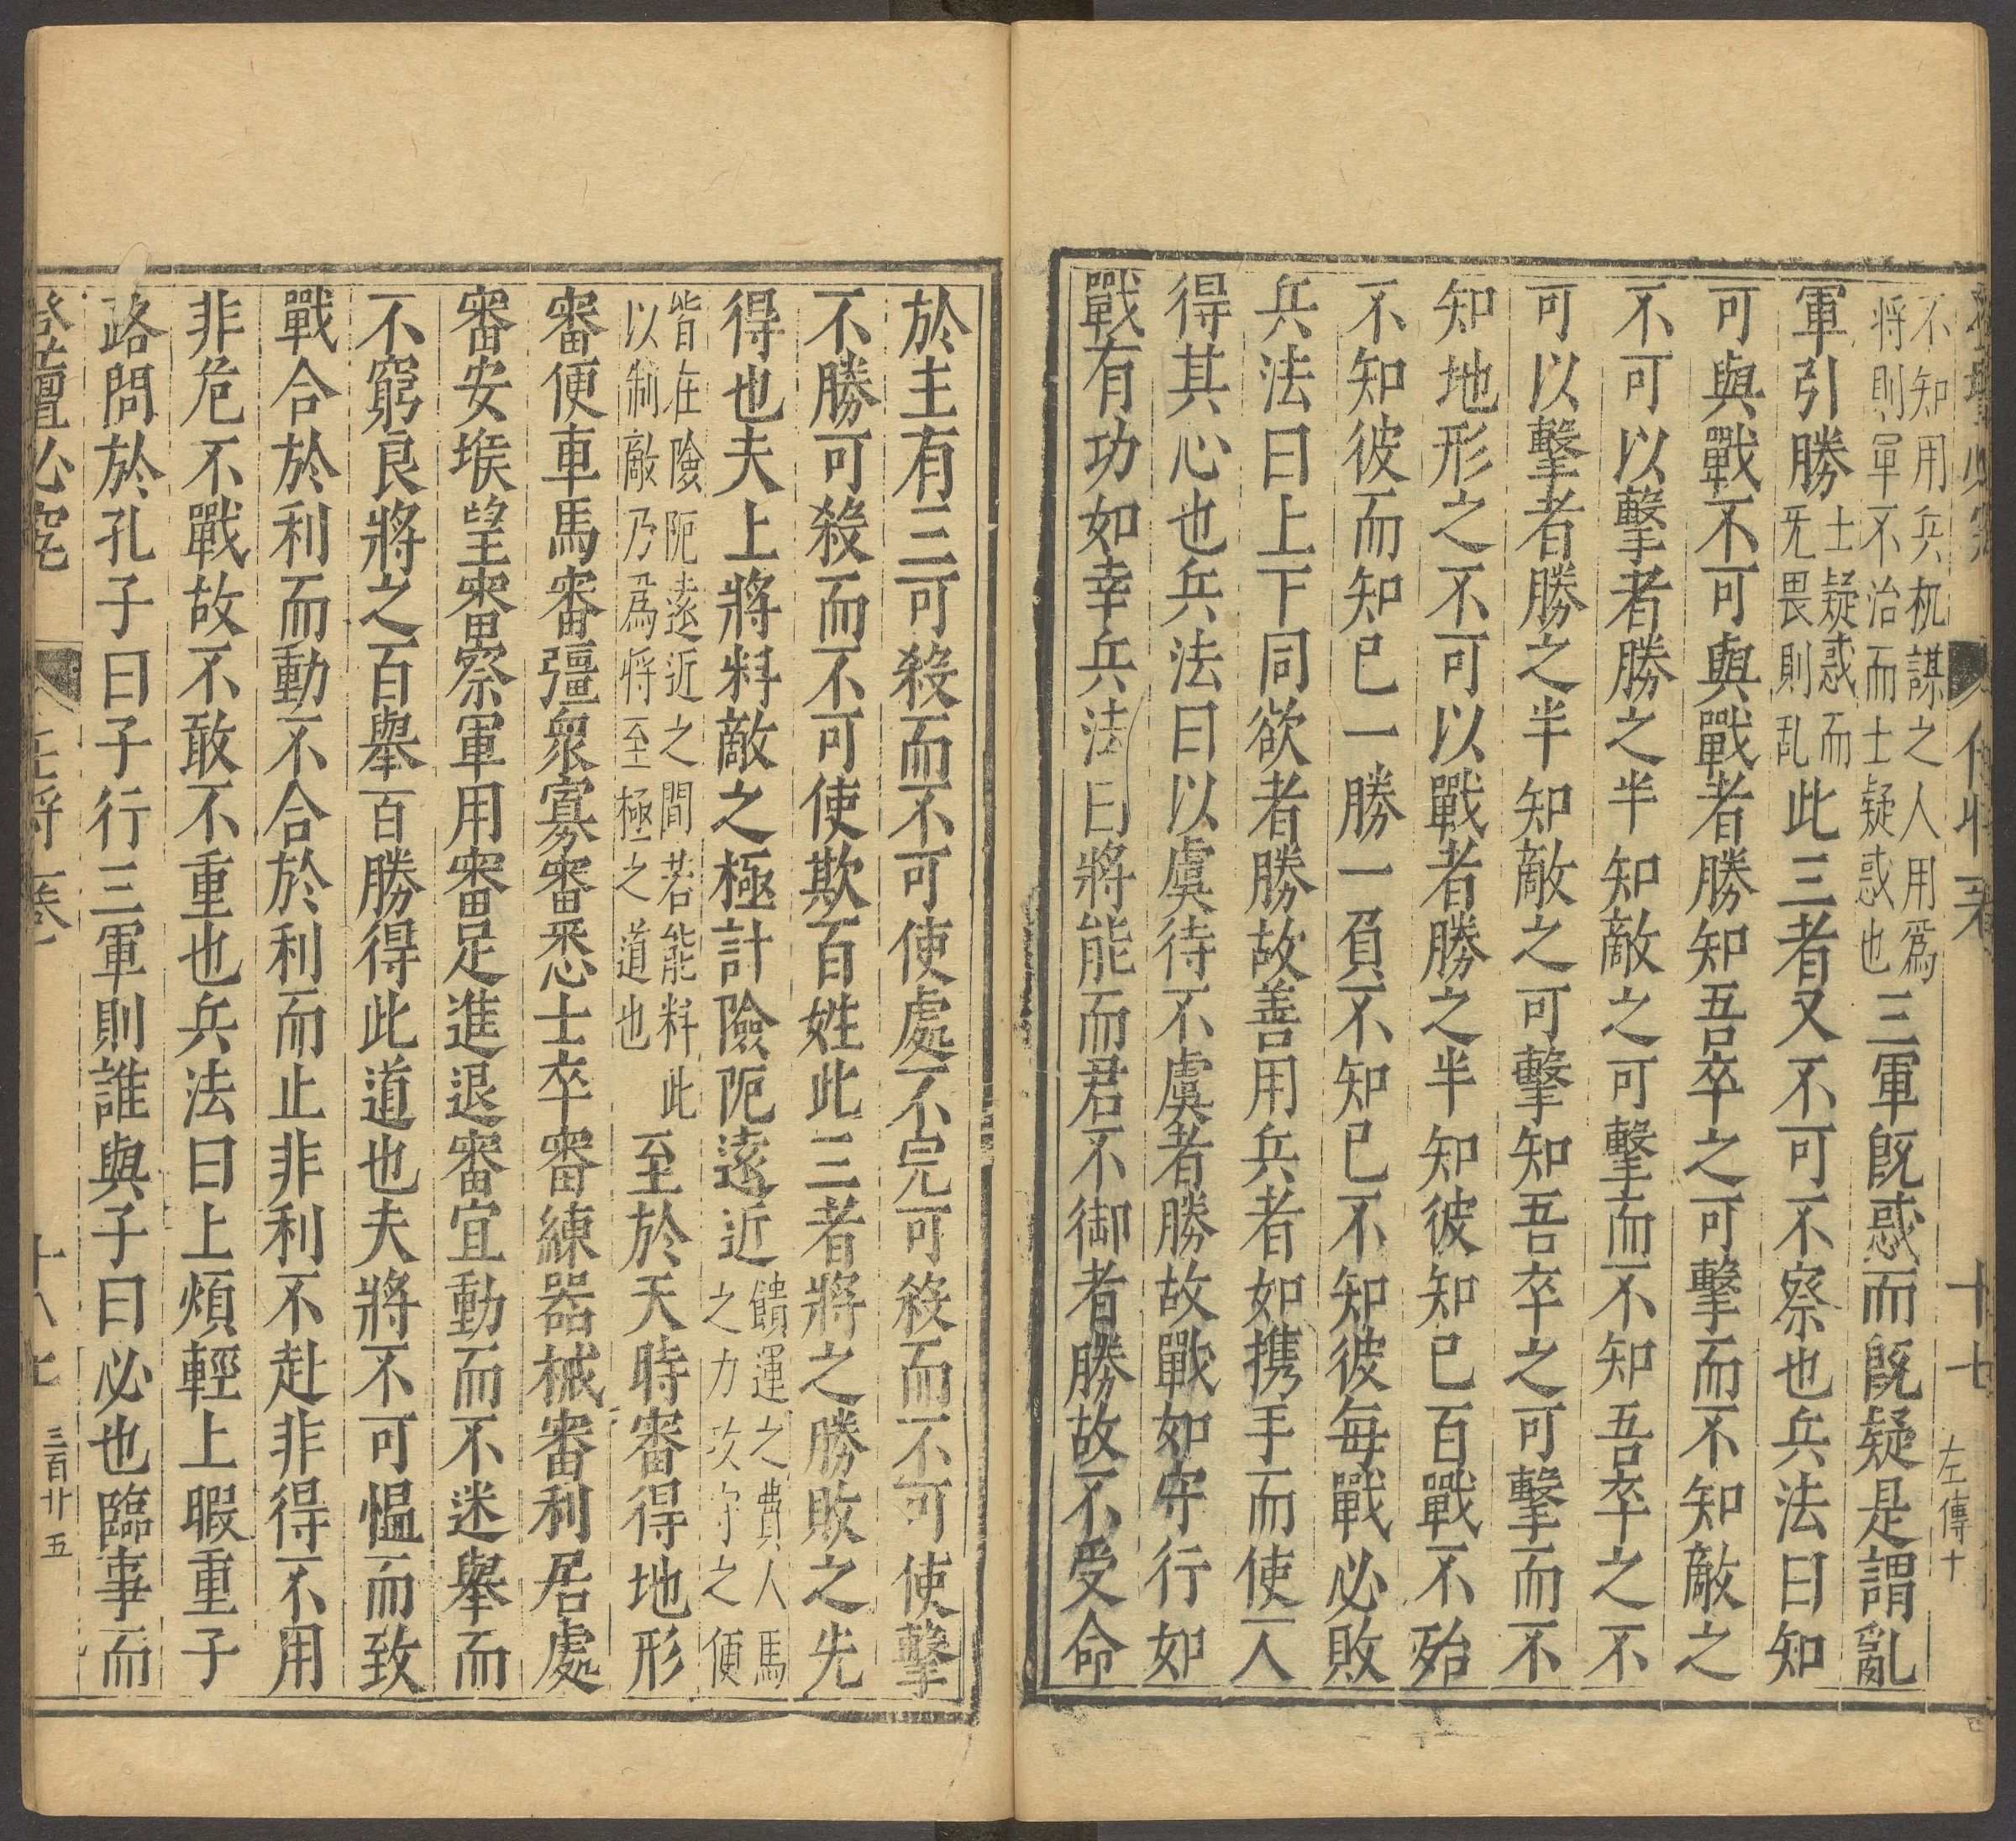 十七
左傳十
不知用兵机謀之人用爲
將則軍不治而士疑惑也
三軍旣惑而旣疑是謂亂
軍引勝
士疑惑而
旡畏則乱
此三者又不可不察也兵法曰知
可與戰不可與戰者勝知吾卒之可擊而不知敵之
不可以擊者勝之半知敵之可擊而不知吾卒之不
可以擊者勝之半知敵之可擊知吾卒之可擊而不
知地形之不可以戰者勝之半知彼知已百戰不殆
不知彼而知已一勝一負不知已不知彼每戰必敗
兵法曰上下同欲者勝故善用兵者如携手而使一人
得其心也兵法曰以虞待不虞者勝故戰如守行如
戰有功如幸兵法曰將能而君不御者勝故不受命
於主有三可殺而不可使處不完可殺而不可使擊
不勝可殺而不可使欺百姓此三者將之勝敗之先
得也夫上將料敵之極計險阨遠近
饋運之費人馬
之力攻守之便
皆在險阨遠近之間若能料此
以制敵乃爲將至極之道也
至於天時審得地形
審便車馬審彊衆寡審悉士卒審練器械審利居處
審安堠望審察軍用審足進退審宜動而不迷舉而
不窮良將之百舉百勝得此道也夫將不可愠而致
戰合於利而動不合於利而止非利不赴非得不用
非危不戰故不敢不重也兵法曰上煩輕上暇重子
路問於孔子曰子行三軍則誰與子曰必也臨事而
登壇必究
十八
三百廿五